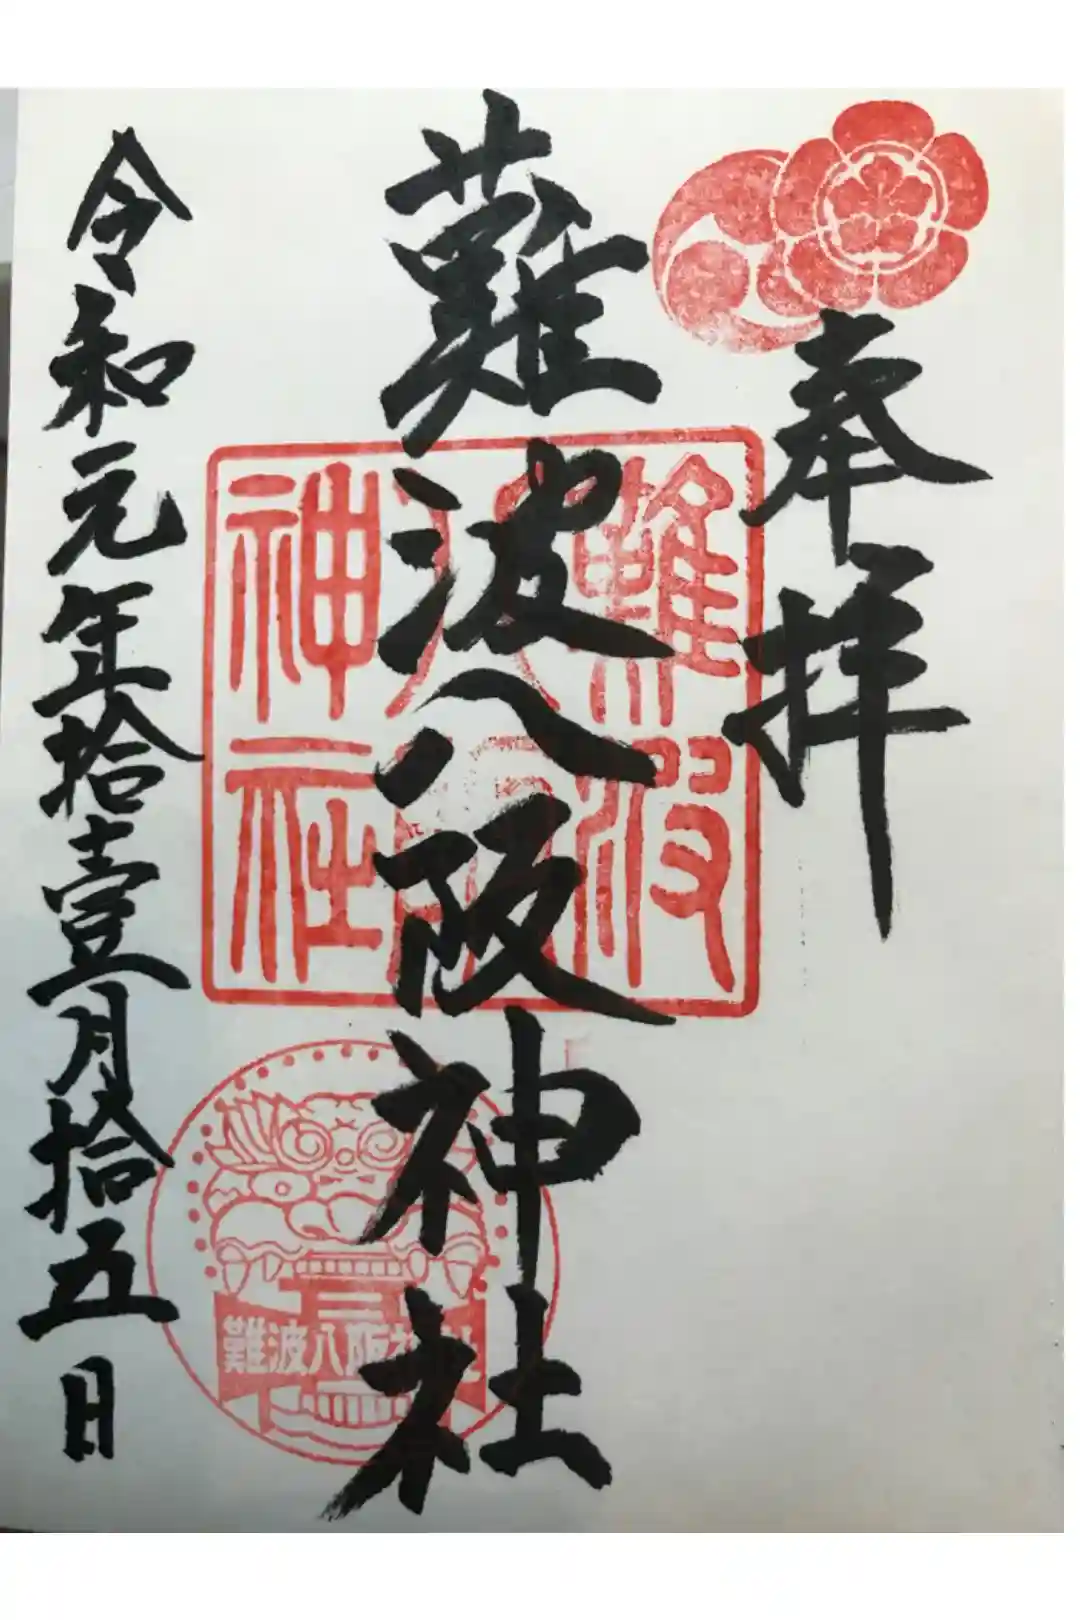 奉拝
難波八阪神社
難波八阪神社
難波八阪神社
令和元年拾壹月拾五日